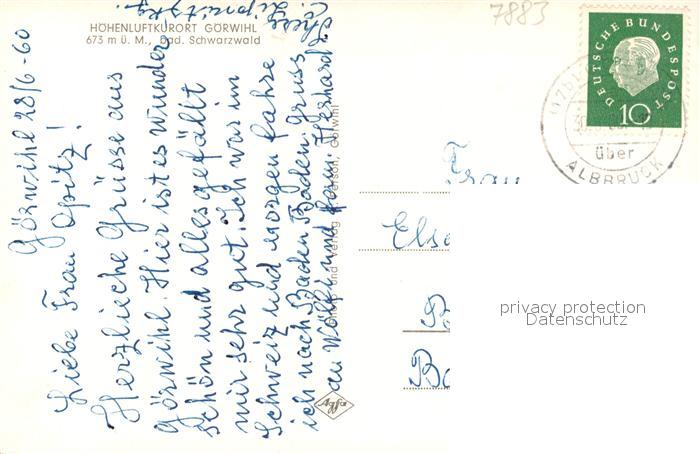 HÖHENLUFTKURORT GÖRWIHL
673 m ü. M., Bad. Schwarzwald
7883
Görwihl 28/6-60
Liebe Frau Opitz!
Herzliche Grüsse aus
Görwihl. Hier ist es wunder
schön und alles gefällt
mir sehr gut. Ich war im
Schweiz und morgen fahre
ich nach Baden Baden. Gruss
an Wölfi und Fam.
Ihre
und Verlag Görwihl
Agfa
DEUTSCHE BUNDESPOST
10
über
ALBBRUCK
Frau
Else
privacy protection
Datenschutz